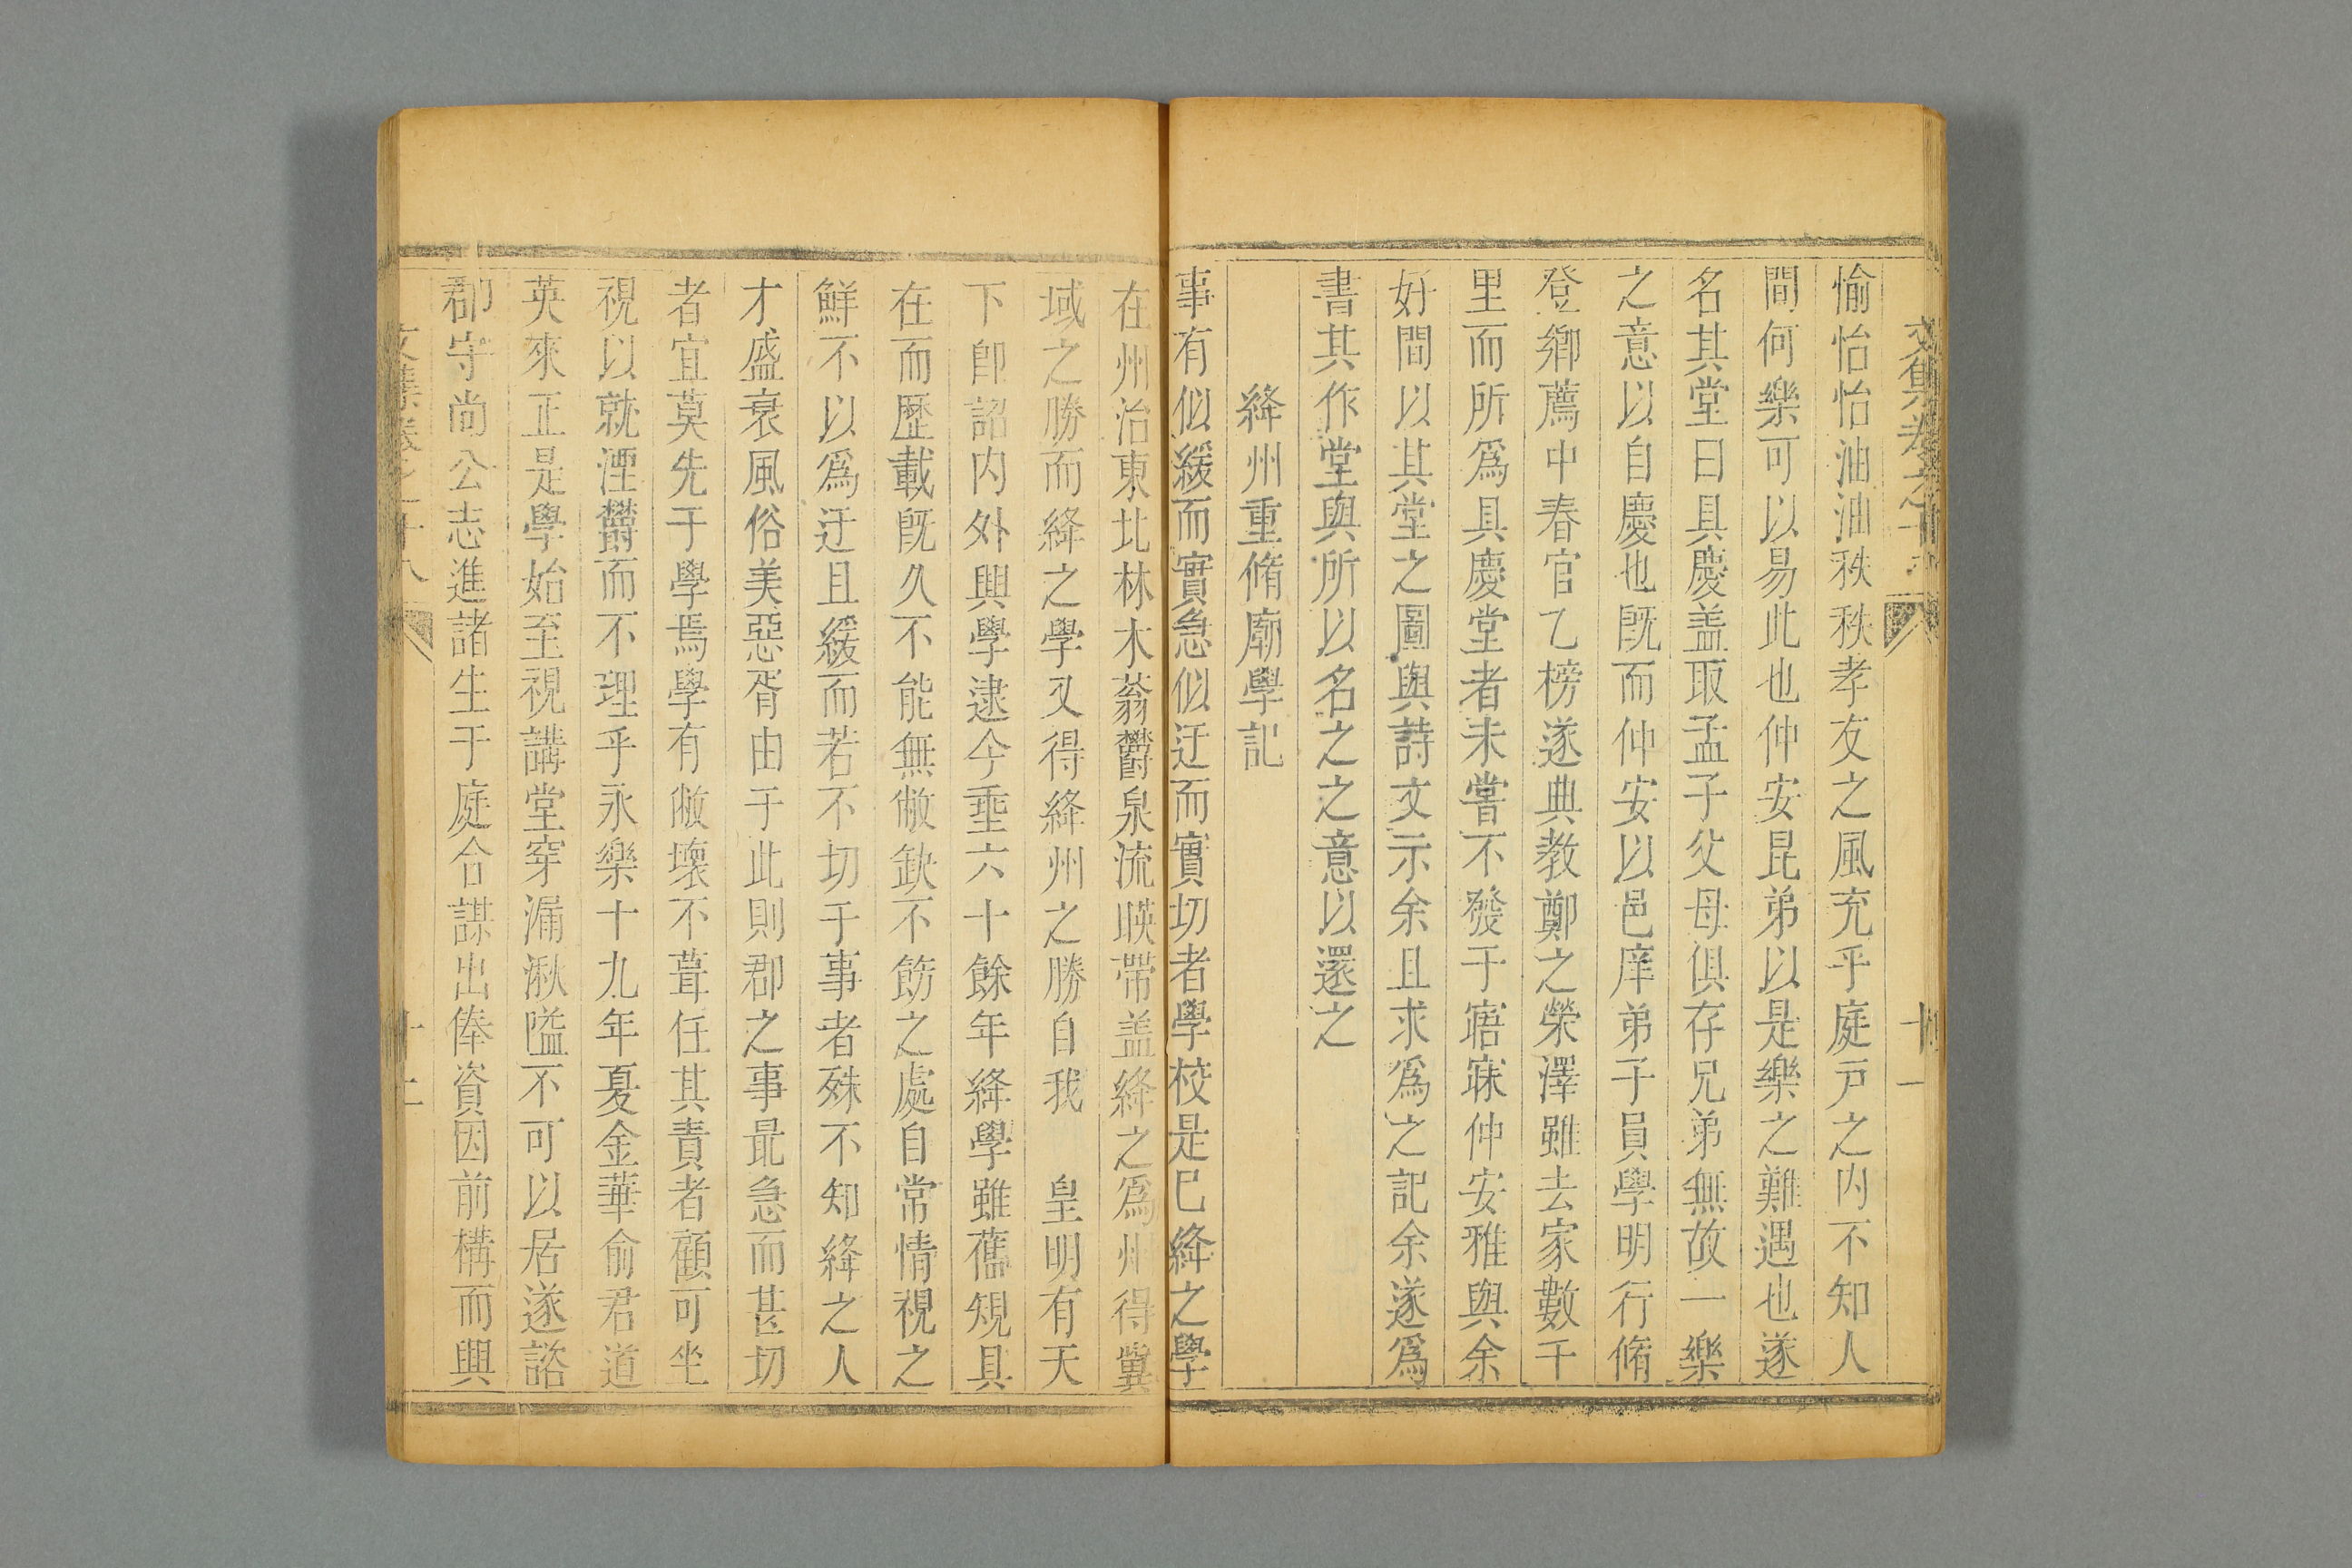 愉怡怡油油秩秩孝友之風充乎庭戸之内不知人
間何樂可以易此也仲安昆弟以是樂之難遇也遂
名其堂曰具慶盖取孟子父母俱存兄弟無故一樂
之意以自慶也旣而仲安以邑庠弟子員學明行脩
登鄉薦中春官乙榜遂典教鄭之榮澤雖去家數千
里而所爲具慶堂者未嘗不發于寤寐仲安雅與余
好間以其堂之圖與詩文示余且求爲之記余遂爲
書其作堂與所以名之之意以還之
絳州重脩廟學記
事有似緩而實急似迂而實切者學校是巳絳之學
在州治東北林木蓊欝泉流暎帶盖絳之爲州得冀
域之勝而絳之學又得絳州之勝自我 皇明有天
下卽詔内外興學逮今埀六十餘年絳學雖舊規具
在而歷載旣久不能無敝缺不飭之處自常情視之
鮮不以爲迂且緩而若不切于事者殊不知絳之人
才盛衰風俗美惡胥由于此則郡之事最急而甚切
者宜莫先于學焉學有敝壞不葺任其責者顧可坐
視以就湮欝而不理乎永樂十九年夏金華俞君道
英來正是學始至視講堂穿漏湫隘不可以居遂諮
郡守尚公志進諸生于庭合謀出俸資因前構而興
文集卷之十八
十二